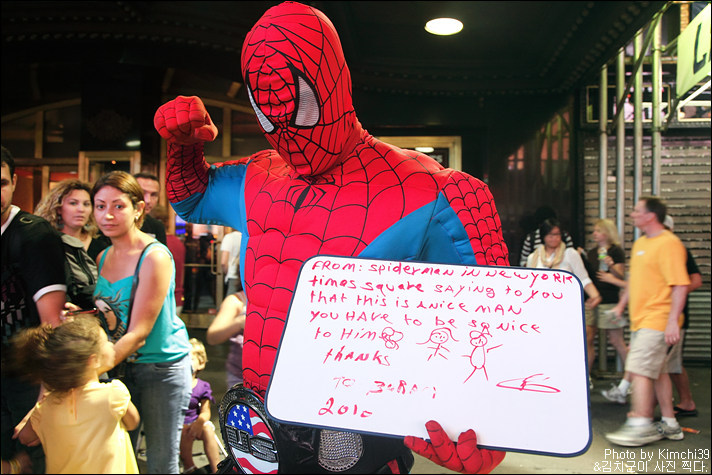 FROM: SPIDERMAN IN NEW YORK
times square SAYING to YOU
that this is A NICE MAN
YOU HAVE to BE SO NICE
to HIM
thanks
TO
2010
Photo by Kimchi39
&김치군의 사진 찍다.